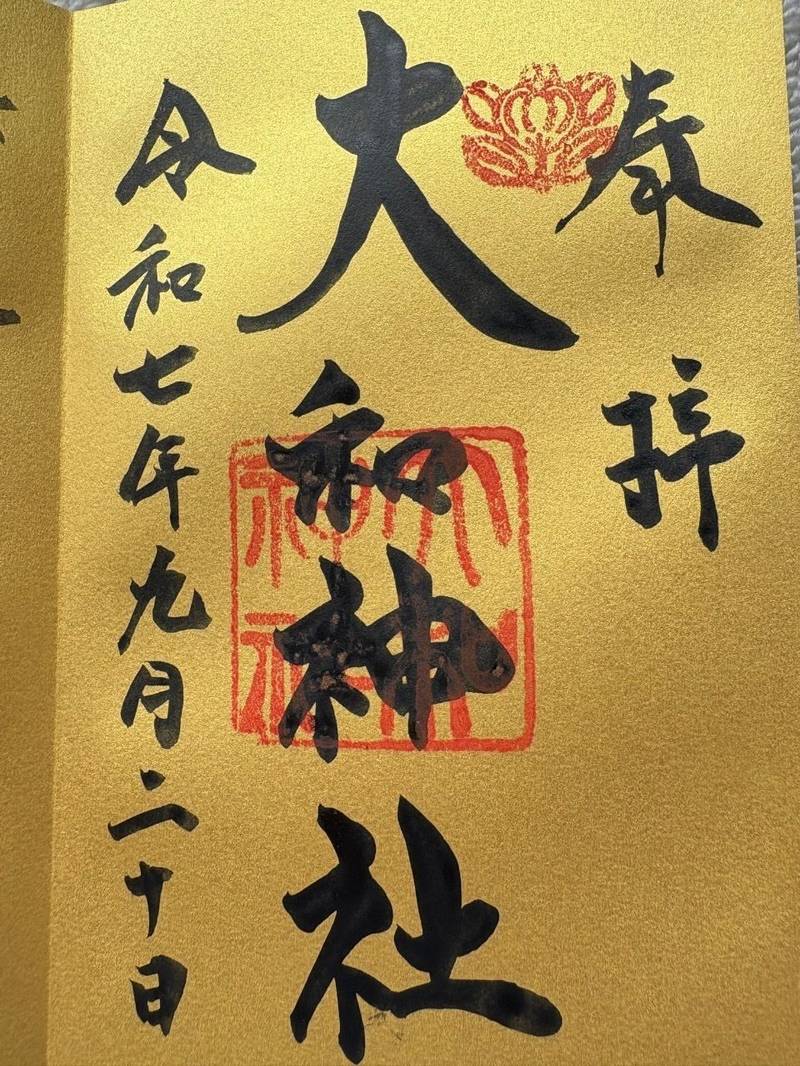 奉拝
大和神社
大和神社
令和七年九月二十日